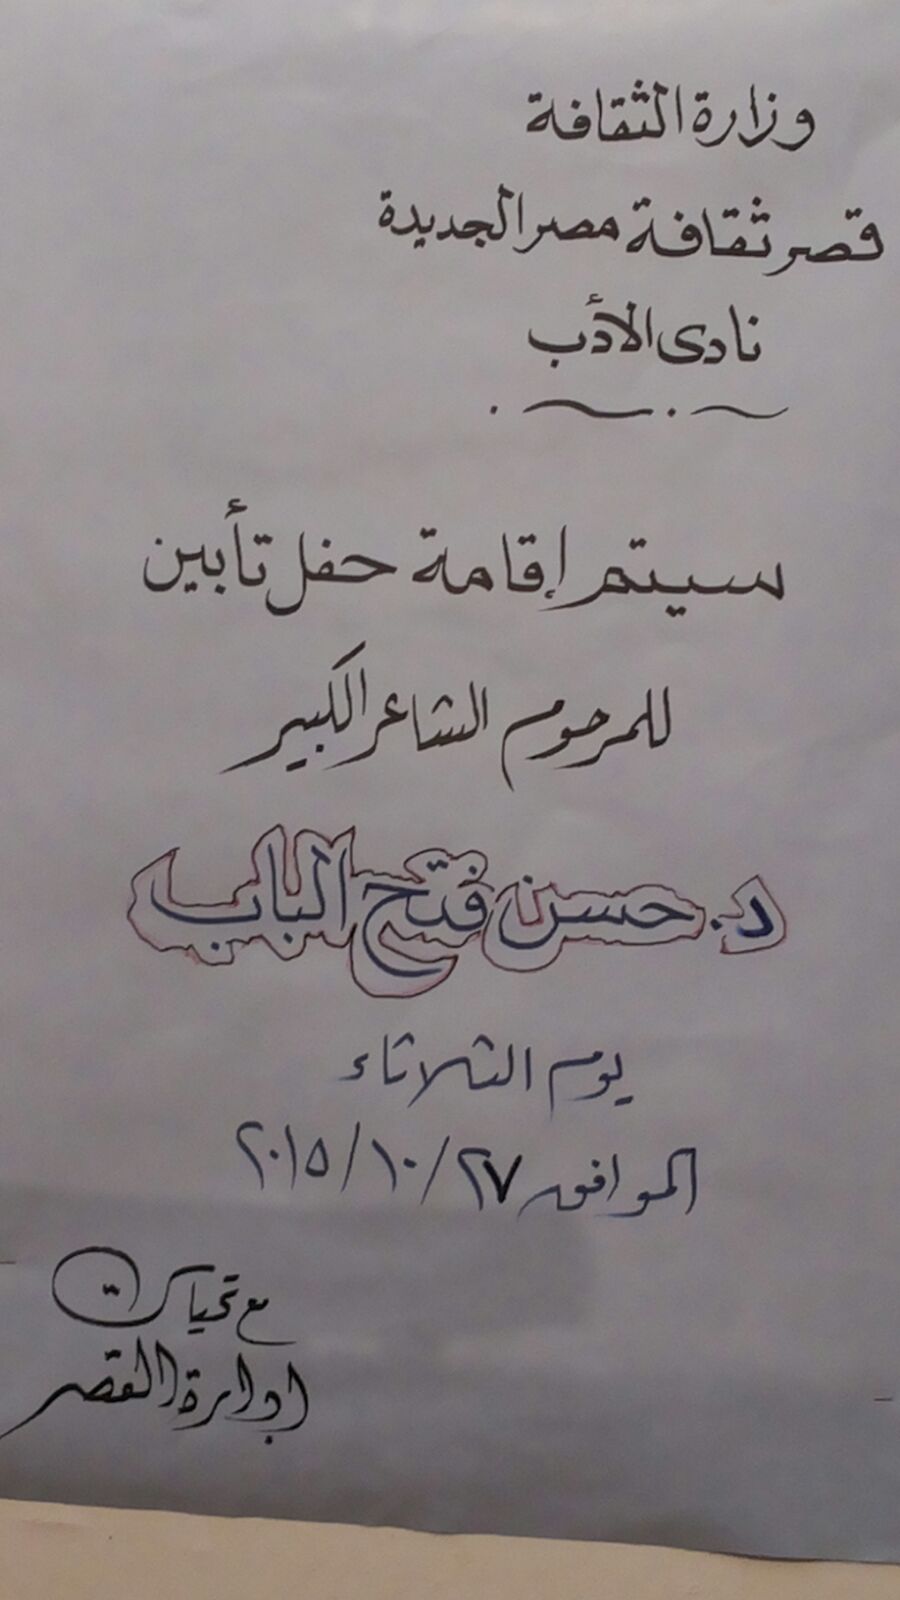 وزارة الثقافة
قصر ثقافة مصر الجديدة
نادى الأدب
سيتم إقامة حفل تأبين
للمرحوم الشاعر الكبير
د. حسن فتح الباب
يوم الثلاثاء
الموافق ٢٧/١٠/٢٠١٥
مع تحيات
إدارة القصر